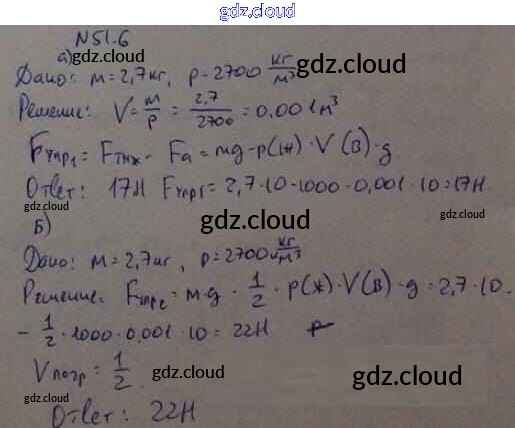 gdz.cloud
N51.6
а)
Дано: m=2,7кг, ρ=2700 кг/м³ gdz.cloud
Решение: V=m/ρ = 2,7/2700 = 0,001м³
gdz.cloud
Fупр1 = Fтяж - Fa = mg-ρ(ж)·V(в)·g
Ответ: 17Н Fупр1 = 2,7·10-1000·0,001·10=17Н.
gdz.cloud gdz.cloud
Б) gdz.cloud
Дано: m=2,7кг, ρ=2700 кг/м³
gdz.cloud gdz.cloud
Решение: Fупр2 = m·g · 1/2 · ρ(ж)·V(в)·g = 2,7·10.
- 1/2 ·1000·0,001·10=22Н
Vпогр = 1/2
gdz.cloud
gdz.cloud
Ответ: 22Н gdz.cloud